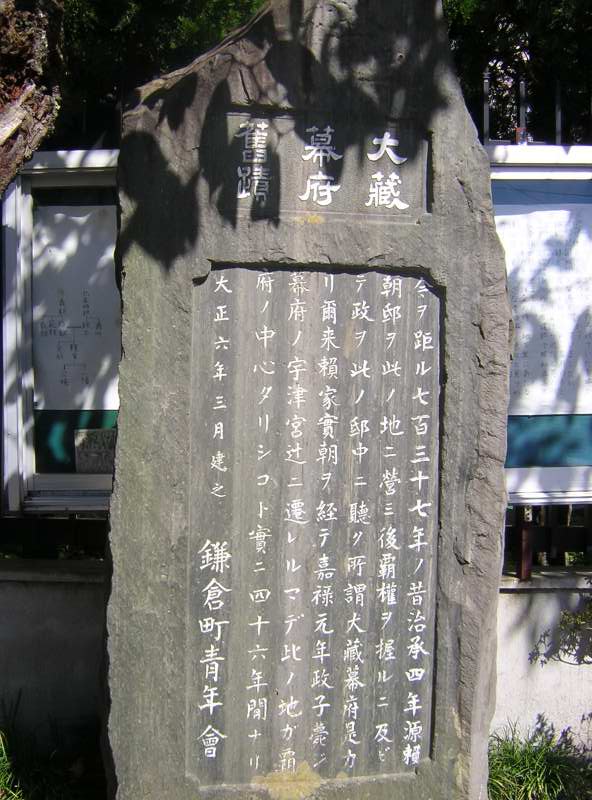 大藏
幕府
舊蹟
今ヲ距ル七百三十七年ノ昔治承四年源賴
朝邸ヲ此ノ地ニ營ミ後覇權ヲ握ルニ及ビ
テ政ヲ此ノ邸中ニ聽ク所謂大藏幕府是ナ
リ爾来賴家實朝ヲ経テ嘉禄元年政子薨ジ
幕府ノ宇津宮辻ニ遷レルマデ此ノ地ガ覇
府ノ中心タリシコト實ニ四十六年間ナリ
大正六年三月建之 鎌倉町青年會